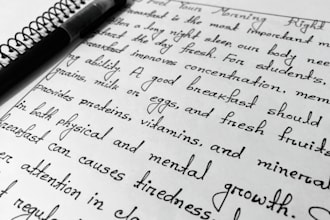 Your Morning Right
breakfast is the most important m
a long night sleep, our body nee
the day fresh. For students,
breakfast improves concentration, mem
ability. A good breakfast should
grains, milk or eggs, and fresh fruits
provides proteins, vitamins, and mineral
both physical and mental growth. S
breakfast can causes tiredness,
attention in cla
regul